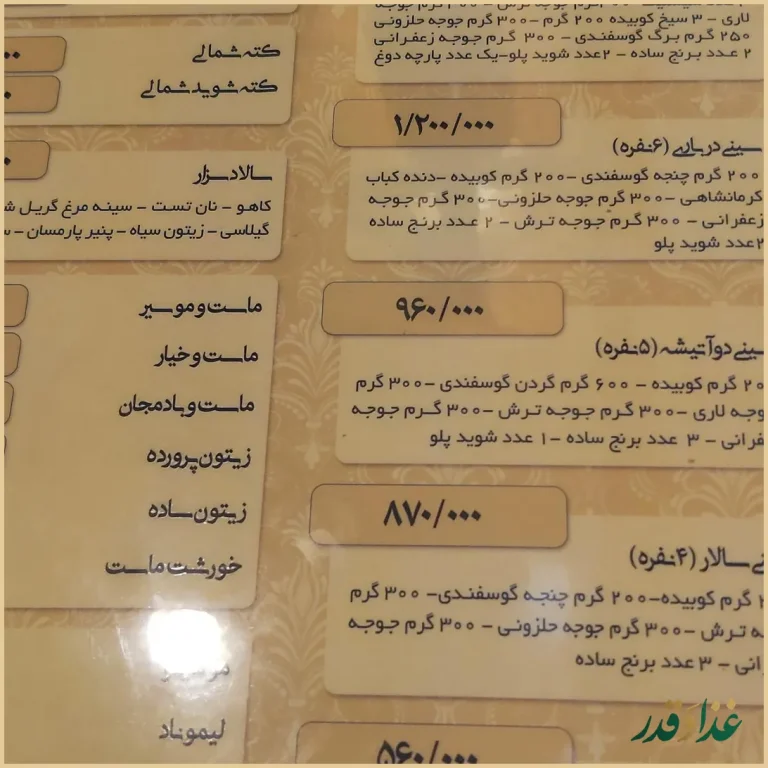 لاری - ۳ سیخ کوبیده ۲۰۰ گرم - ۳۰۰ گرم جوجه حلزونی
۲۵۰ گرم برگ گوسفندی - ۳۰۰ گرم جوجه زعفرانی
۲ عدد برنج ساده - ۲عدد شوید پلو-یک عدد پارچه دوغ
۱/۲۰۰/۰۰۰
سینی درباری (۶نفره)
۲۰۰ گرم چنجه گوسفندی -۲۰۰ گرم کوبیده -دنده کباب
کرمانشاهی -۳۰۰ گرم جوجه حلزونی-۳۰۰ گرم جوجه
زعفرانی - ۳۰۰ گرم جوجه ترش - ۲ عدد برنج ساده
۲عدد شوید پلو
۹۶۰/۰۰۰
سینی دوآتیشه (۵نفره)
گرم کوبیده - ۶۰۰ گرم گردن گوسفندی -۳۰۰ گرم
جوجه لاری -۳۰۰ گرم جوجه ترش -۳۰۰ گرم جوجه
- ۳ عدد برنج ساده -۱ عدد شوید پلو
۸۷۰/۰۰۰
سالار (۴نفره)
گرم کوبیده-۲۰۰ گرم چنجه گوسفندی- ۳۰۰ گرم
ترش -۳۰۰ گرم جوجه حلزونی - ۳۰۰ گرم جوجه
- ۳ عدد برنج ساده
۵۶۰/۰۰۰
کته شمالی
کته شوید شمالی
سالاد سزار
کاهو - نان تست - سینه مرغ گریل
گیلاسی - زیتون سیاه - پنیر پارمسان -
ماست و موسیر
ماست و خیار
ماست و بادمجان
زیتون پرورده
زیتون ساده
خورشت ماست
لیموناد
غذا و قدر